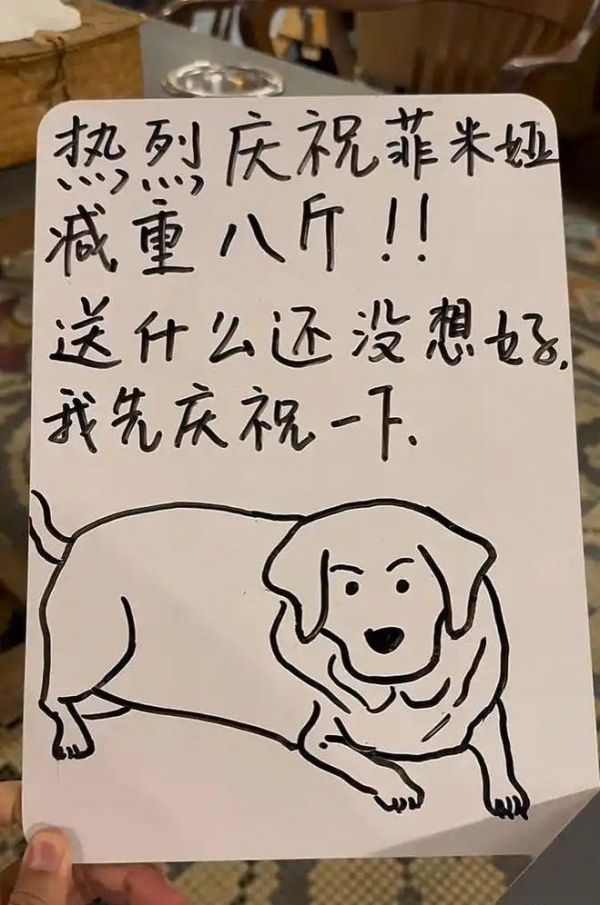 热烈庆祝菲米娅
减重八斤!!
送什么还没想好,
我先庆祝一下.